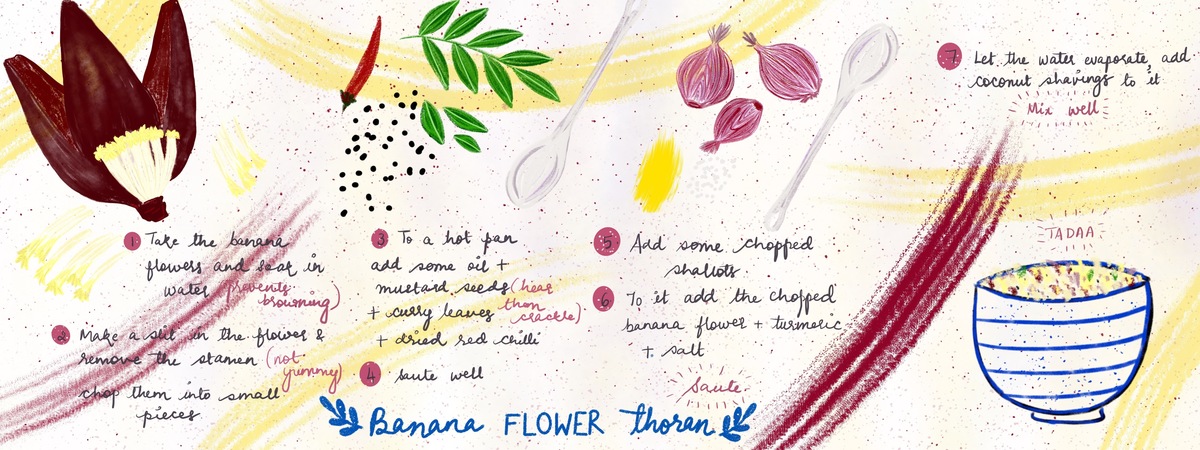 1 Take the banana
flowers and soak in
water (prevents
browning)
2 Make a slit in the flower &
remove the stamen (not
yummy)
chop them into small
pieces
3 To a hot pan
add some oil +
mustard seeds (hear
them
+ curry leaves crackle)
+ dried red chilli
4 saute well
5 Add some chopped
shallots
6 To it add the chopped
banana flower + turmeric
+ salt
Saute
7 Let the water evaporate, add
coconut shavings to it
Mix well
TADAA
Banana FLOWER thoran